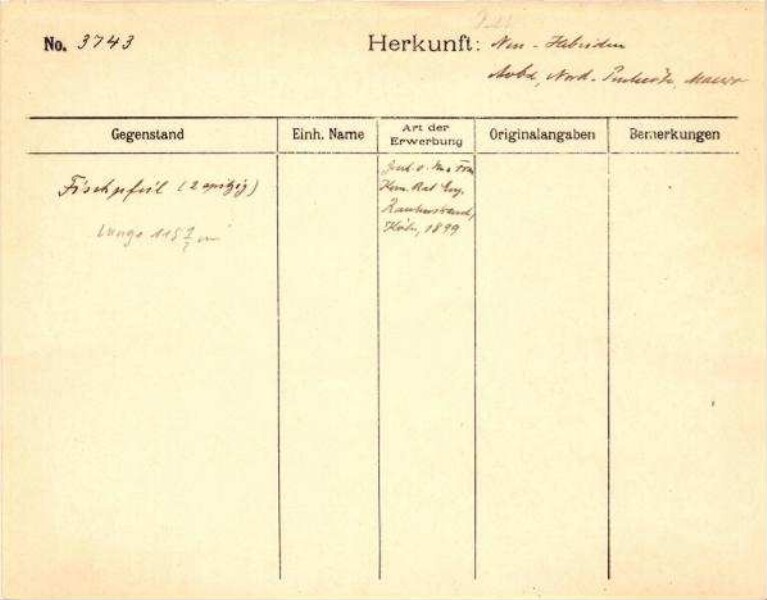 No. 3743
Herkunft: Neu-Hebriden
Aoba, Nord-Pentecôte, Maewo
Gegenstand Einh. Name Art der Erwerbung Originalangaben Bemerkungen
Fischpfeil (2 spitzig)
Länge 115
Rautenstrauch,
Köln, 1899